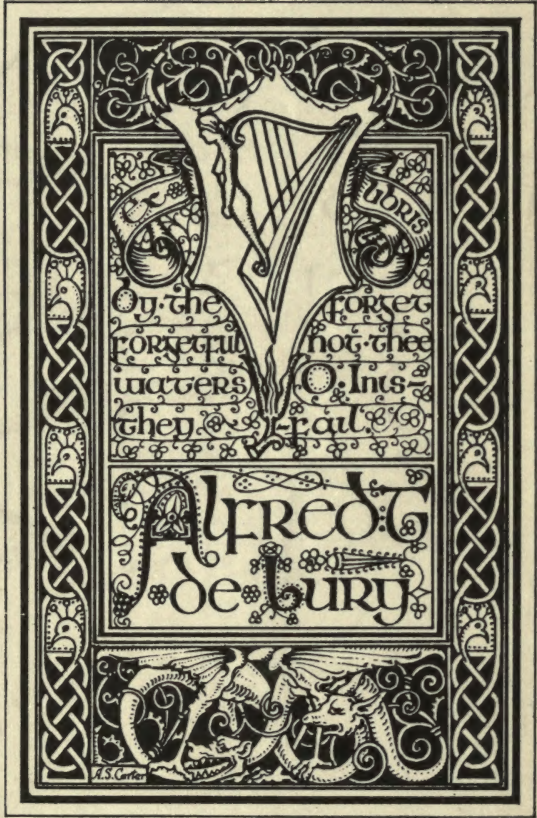 LIBRIS
By·the
forgetful
waters
they
forget
not·thee
O:Inis-
-fail.
Alfred:T
·de·Lury
A.S. Carter